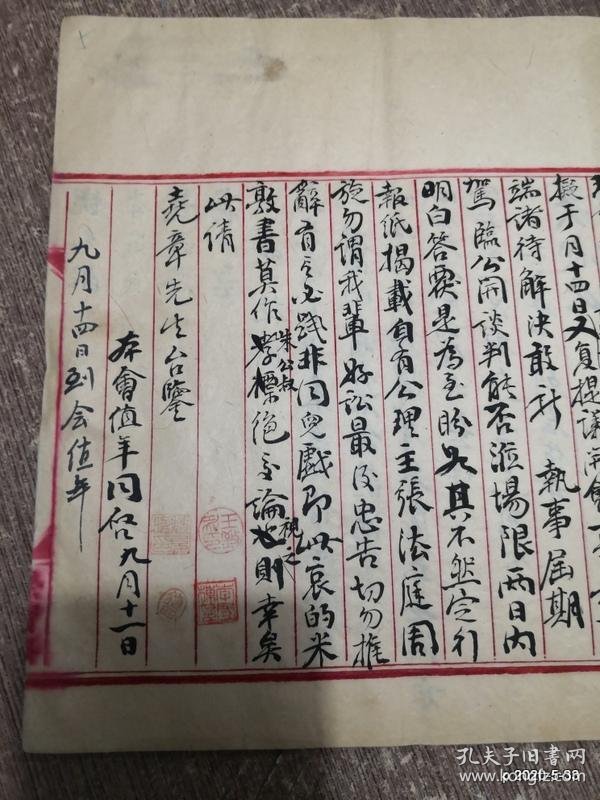 擬于月十四日又复提議開會
端諸待解決敢祈 執事屆期
駕臨公開談判能否涖場限兩日内
明白答霓是為至盼如其不然定行
報紙揭載自有公理主張法庭周
旋勿謂我輩好訟最後忠告切勿推
辭有言必踐非同兒戲即此哀的米
敦書莫作孝標絕交論視之則幸矣
朱公叔
此請
堯章先生台鑒
本會值年同啟九月十一日
九月十四日到会值年
孔夫子旧书网
www.kongfz.com
2020-5-30